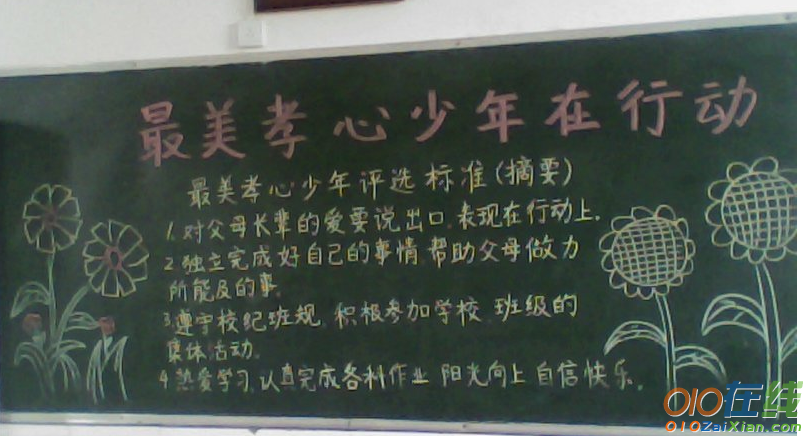 最美孝心少年在行动
最美孝心少年评选标准(摘要)
1.对父母长辈的爱要说出口,表现在行动上。
2.独立完成好自己的事情,帮助父母做力
所能及的事。
3.遵守校纪班规,积极参加学校、班级的
集体活动。
4.热爱学习,认真完成各科作业,阳光向上,自信快乐。
010在线
010ZaiXian.com